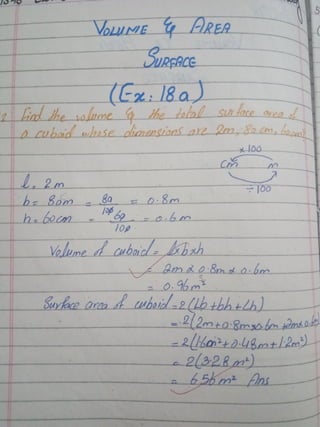 VOLUME & AREA
SURFACE
(Ex: 18a)
2 Find the volume & the total surface area of
a cuboid whose dimensions are 2m, 80cm, 60cm
x100
cm m
÷100
l = 2m
b = 80m = 80/100 = 0.8m
h = 60cm = 60/100 = 0.6m
Volume of cuboid = lxbxh
= 2m x 0.8m x 0.6m
= 0.96m³
Surface area of cuboid = 2(lb+bh+lh)
= 2(2m+0.8mx0.6m+2mx0.6
= 2(1.6m²+0.48m+1.2m²)
= 2(3.28m²)
= 6.56m² Ans